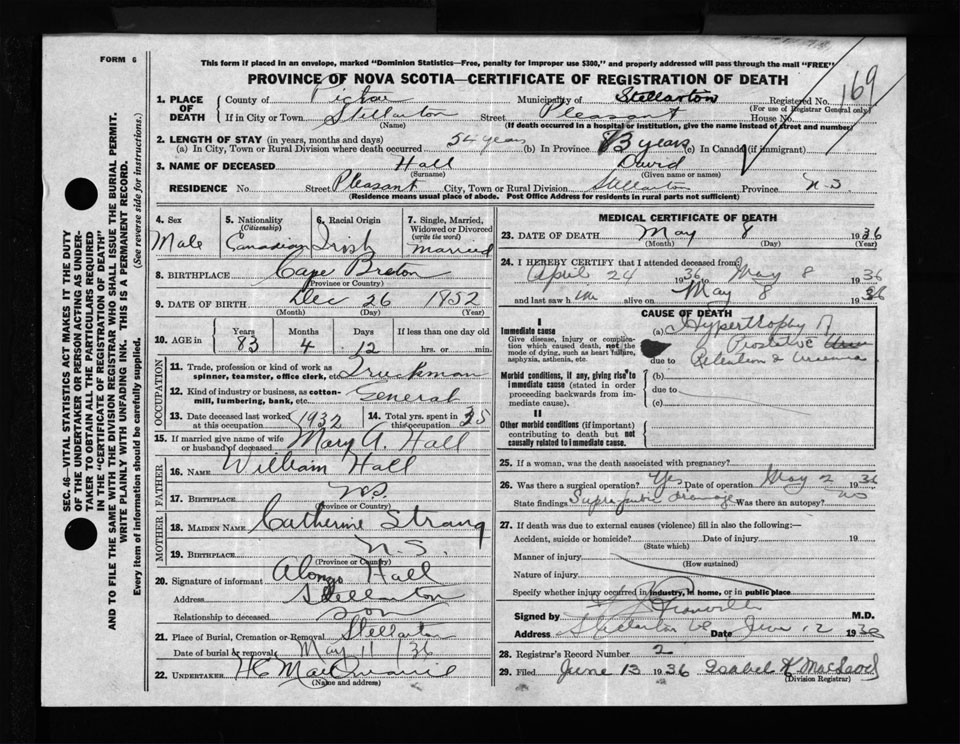 FORM 6
This form if placed in an envelope, marked "Dominion Statistics—Free, penalty for improper use $300," and properly addressed will pass through the mail "FREE"
PROVINCE OF NOVA SCOTIA—CERTIFICATE OF REGISTRATION OF DEATH
169
1. PLACE OF DEATH County of Pictou Municipality of Stellarton Registered No.
(For use of Registrar General only)
If in City or Town Stellarton Street Pleasant House No.
(Name) (If death occurred in a hospital or institution, give the name instead of street and number)
2. LENGTH OF STAY (in years, months and days)
(a) In City, Town or Rural Division where death occurred 54 years (b) In Province 83 years (c) In Canada (if immigrant)
3. NAME OF DECEASED Hall David
(Surname) (Given name or names)
RESIDENCE No. Street Pleasant City, Town or Rural Division Stellarton Province N.S.
(Residence means usual place of abode. Post Office Address for residents in rural parts not sufficient)
SEC. 46—VITAL STATISTICS ACT MAKES IT THE DUTY
OF THE UNDERTAKER OR PERSON ACTING AS UNDER-
TAKER TO OBTAIN ALL THE PARTICULARS REQUIRED
IN THE "CERTIFICATE OF REGISTRATION OF DEATH"
AND TO FILE THE SAME WITH THE DIVISION REGISTRAR WHO SHALL ISSUE THE BURIAL PERMIT.
WRITE PLAINLY WITH UNFADING INK. THIS IS A PERMANENT RECORD.
Every item of information should be carefully supplied. (See reverse side for instructions.)
4. Sex Male
5. Nationality (Citizenship) Canadian
6. Racial Origin Irish
7. Single, Married, Widowed or Divorced (write the word) Married
8. BIRTHPLACE Cape Breton
(Province or Country)
9. DATE OF BIRTH Dec 26 1852
(Month) (Day) (Year)
10. AGE in Years 83 Months 4 Days 12 If less than one day old hrs. or min.
OCCUPATION
11. Trade, profession or kind of work as spinner, teamster, office clerk, etc. Truckman
12. Kind of industry or business, as cotton-mill, lumbering, bank, etc. General
13. Date deceased last worked at this occupation 1932 14. Total yrs. spent in this occupation 35
15. If married give name of wife or husband of deceased Mary A. Hall
FATHER
16. NAME William Hall
17. BIRTHPLACE N.S.
(Province or Country)
MOTHER
18. MAIDEN NAME Catherine Strang
19. BIRTHPLACE N.S.
(Province or Country)
20. Signature of informant Alonzo Hall
Address Stellarton
Relationship to deceased son
21. Place of Burial, Cremation or Removal Stellarton
Date of burial or removal May 11 / 36
22. UNDERTAKER H C
(Name and address)
MEDICAL CERTIFICATE OF DEATH
23. DATE OF DEATH May 8 1936
(Month) (Day) (Year)
24. I HEREBY CERTIFY that I attended deceased from:
April 24 1936 to May 8 1936
and last saw him alive on May 8 1936
CAUSE OF DEATH
I
Immediate cause
Give disease, injury or complication which caused death, not the mode of dying, such as heart failure, asphyxia, asthenia, etc.
(a) Hypertrophy of
Prostate
due to Retention & Uraemia
Morbid conditions, if any, giving rise to immediate cause (stated in order proceeding backwards from immediate cause).
(b)
due to
(c)
II
Other morbid conditions (if important) contributing to death but not causally related to immediate cause.
25. If a woman, was the death associated with pregnancy?
26. Was there a surgical operation? Yes Date of operation May 2 1936
State findings Supra-pubic drainage Was there an autopsy? No
27. If death was due to external causes (violence) fill in also the following:—
Accident, suicide or homicide? Date of injury 19
(State which)
Manner of injury
(How sustained)
Nature of injury
Specify whether injury occurred in industry, in home, or in public place
Signed by M.D.
Address Stellarton Date June 12 1936
28. Registrar's Record Number 2
29. Filed June 13 1936 Isabel K MacLeod
(Division Registrar)